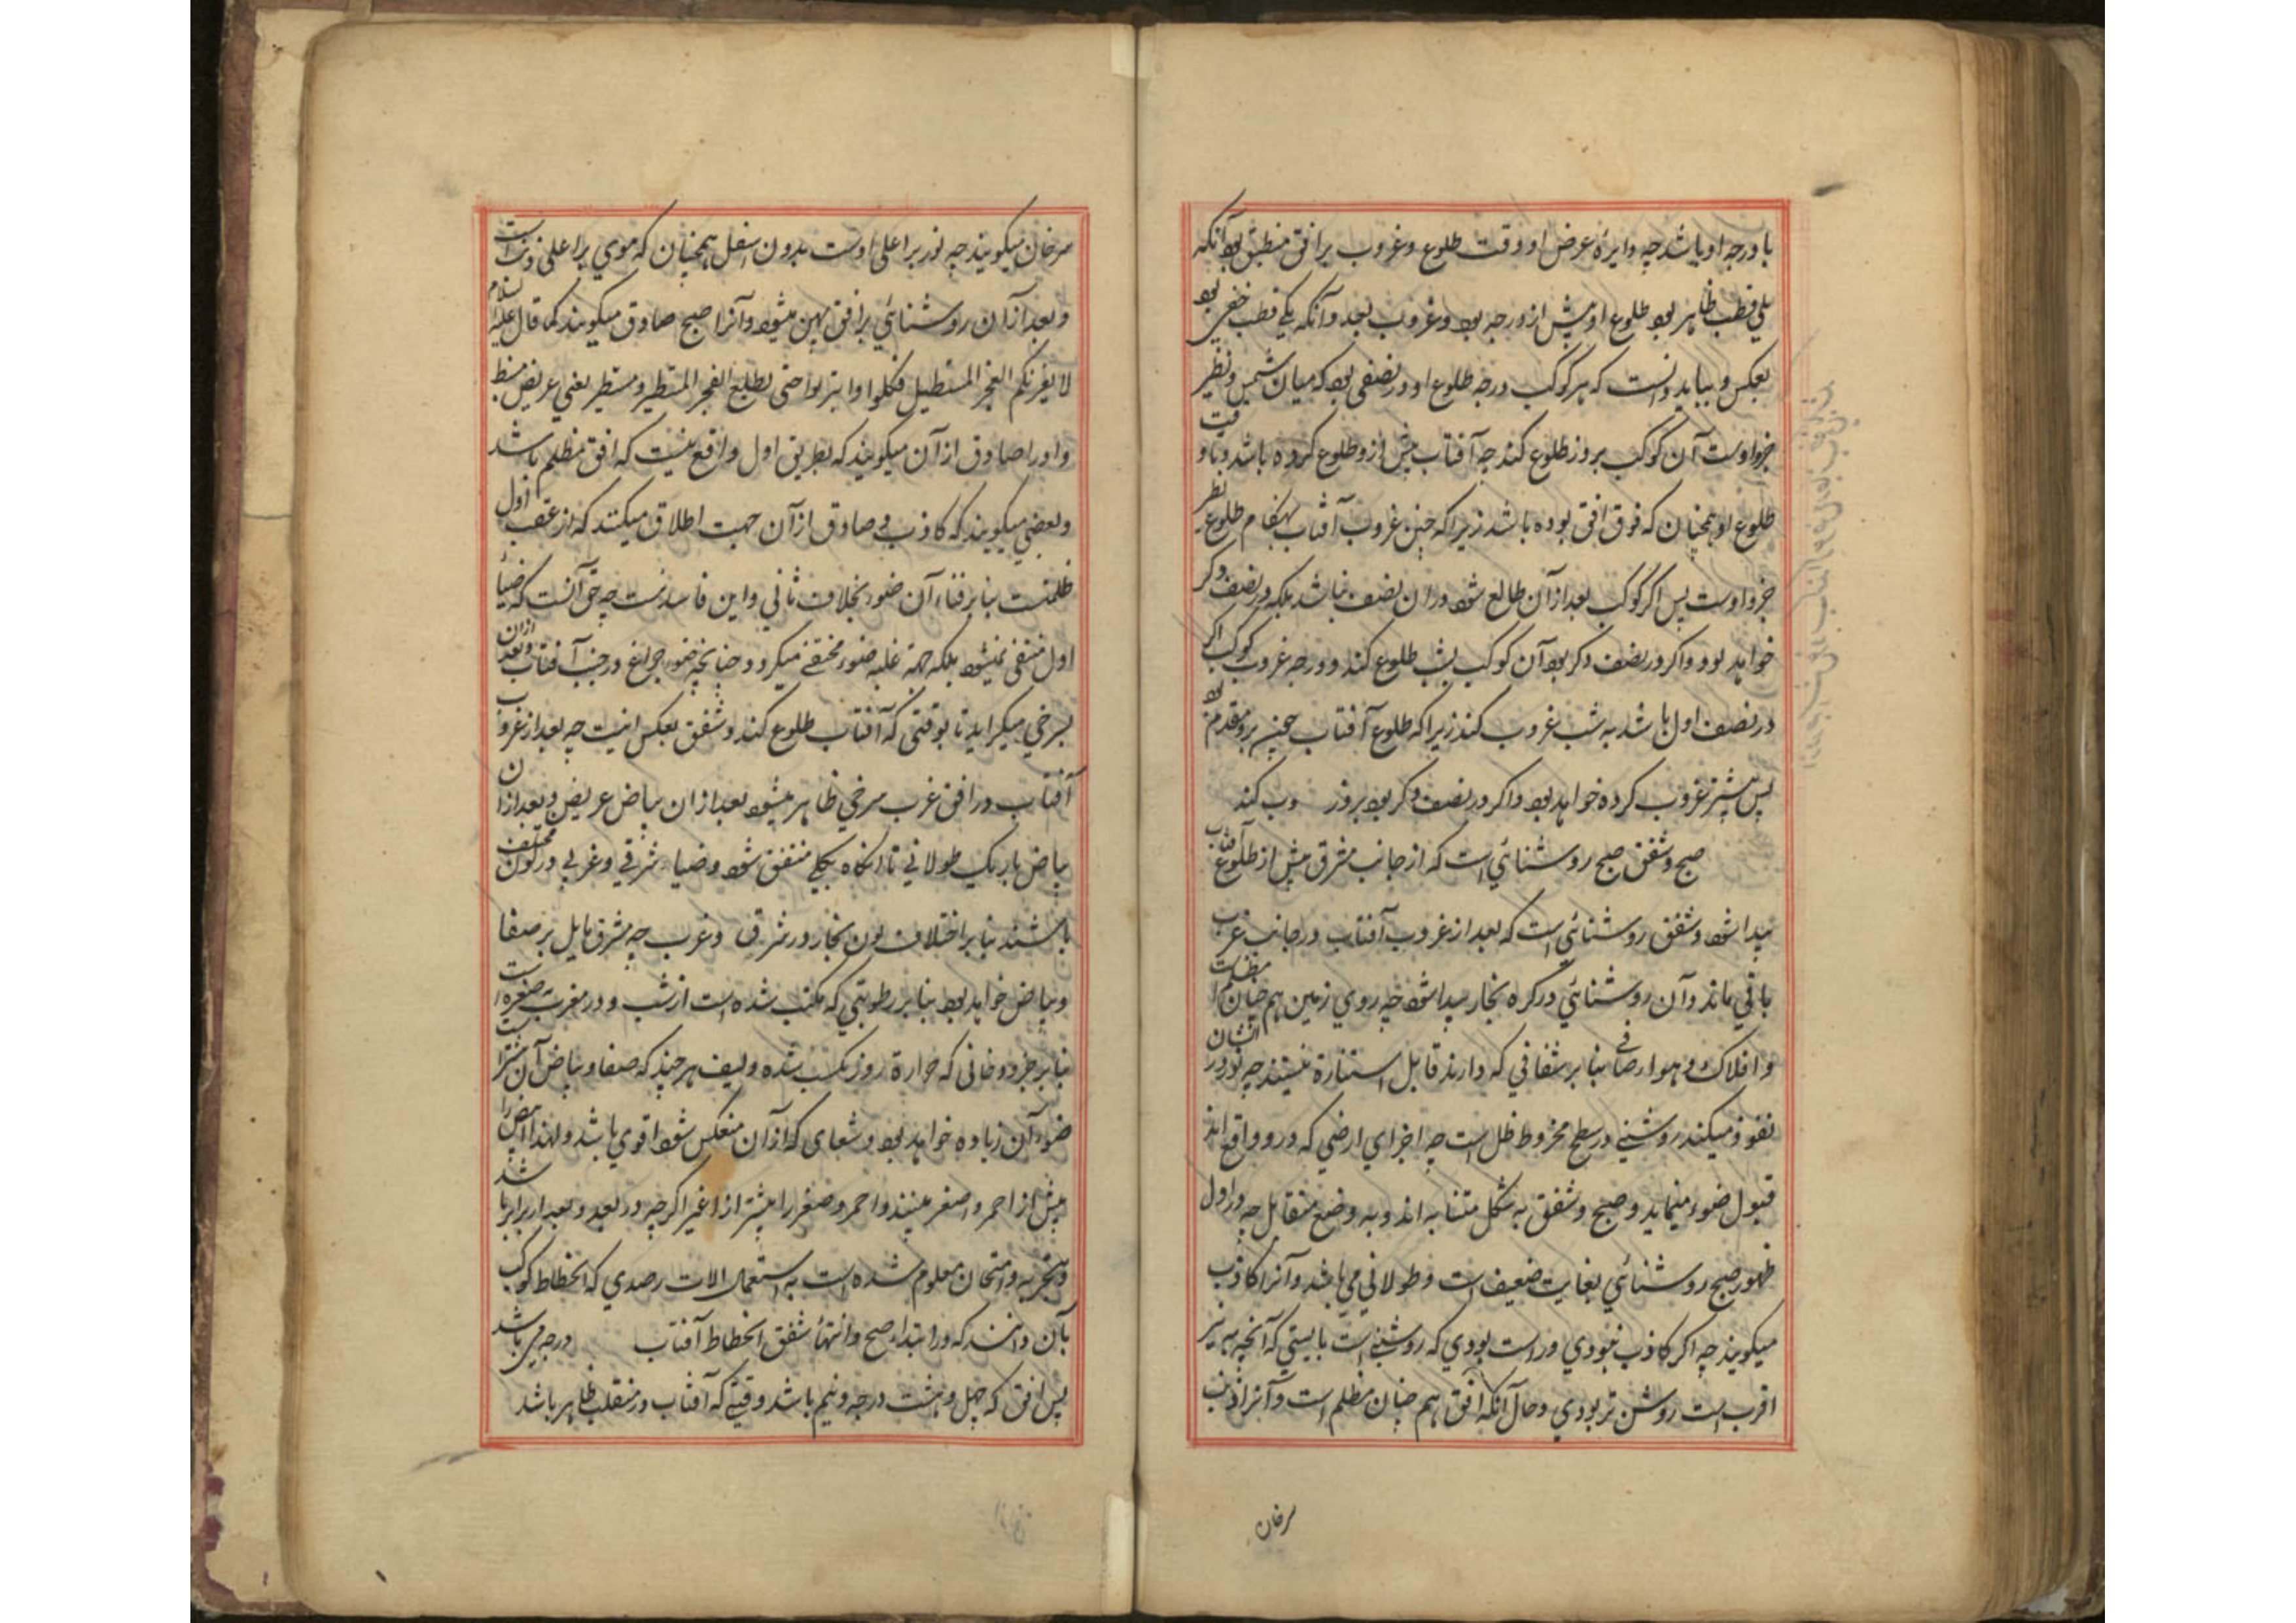 با درجه او باشد چه دایرۀ عرض او وقت طلوع و غروب بر افق منطبق بود آنکه
یلی قطب ظاهر بود طلوع او پیش از درجه بود و غروب بعد و آنکه یلی قطب خفی بود
بعکس و بباید دانست که هر کوکب درجه طلوع او در نصفی بود که میان شمس و نظیر
جزو اوست آن کوکب بروز طلوع کند چه آفتاب پیش ازو طلوع کرده باشد و تا وقت
طلوع او همچنان که فوق افق بوده باشد زیرا که حین غروب آفتاب هنکام طلوع نظیر
جزو اوست پس اکر کوکب بعد از آن طالع شود در ان نصف نباشد بلکه در نصف دکر
خواهد بود و اکر در نصف دکر بود آن کوکب بشب طلوع کند و درجه غروب کوکب اکر
در نصف اول باشد به شب غروب کند زیرا که طلوع آفتاب حین برو مقدم بود
پس پیشتر غروب کرده خواهد بود و اکر در نصف دکر بود بروز وب کند
صبح و شفق صبح روشنائی است که از جانب مشرق پیش از طلوع آفتاب
پیدا شود و شفق روشنائی است که بعد از غروب آفتاب در جانب غرب
باقی ماند و آن روشنائی در کره بخار پیدا شود چه روی زمین هم چنان مظلم است
و افلاک و هواء صافی بنا بر شفافی که دارند قابل استنارة نیستند چه نور در ایشان
نفوذ میکند روشنی در سطح مخروط ظل است چه اجزای ارضی که درو واقع اند
قبول ضوء مینماید و صبح و شفق به شکل متشابه اند و به وضع متقابل چه در اول
ظهور صبح روشنائی بغایت ضعیف است و طولانی می باشد و آنرا کاذب
میکویند چه اکر کاذب نبودی و راست بودی که روشنی است بایستی که آنچه به نیر
اقرب است روشن تر بودی و حال آنکه افق هم چنان مظلم است و آنرا ذنب
سرحان
سرحان میکویند چه نور بر اعلی اوست بدون اسفل همچنان که موی بر اعلی ذنب است
و بعد از آن روشنائی بر افق پهن میشود و آنرا صبح صادق میکویند کما قال علیه السلام
لا یغرنکم الفجر المستطیل فکلوا و اشربوا حتی یطلع الفجر المستطیر و مستطیر یعنی عریض منبسط
و او را صادق از آن میکویند که بطریق اول واقع نیست که افق مظلم باشد
و بعضی میکویند که کاذب و صادق از آن جهت اطلاق میکنند که از عقب اول
ظلمتست بنا بر فناء آن ضوء بخلاف ثانی و این فاسد است چه حق آنست که ضیاء
اول منتفی نمیشود بلکه جهة غلبه ضوء مختفی میکردد چنانچه ضوء چراغ در جنب آفتاب و بعد ازان
بسرخی میکراید تا بوقتی که آفتاب طلوع کند و شفق بعکس اینست چه بعد از غروب
آفتاب در افق غرب سرخی ظاهر میشود بعد ازان بیاض عریض و بعد ازان
بیاض باریک طولانی تا انکاه بکلی منتفی شود و ضیاء شرقی و غربی در لون مختلف
باشند بنا بر اختلاف لون بخار در شرق و غرب چه مشرق مایل بر صفا
و بیاض خواهد بود بنا بر رطوبتی که مکتسب شده است از شب و در مغرب به صفره است
بنا بر جزو دخانی که حرارة روز مکتسب شده و لیف هر چند که صفا و بیاض آن بیشتر است
ضوء آن زیاده خواهد بود و شعاعی که از آن منعکس شود اقوی باشد و لهذا ابیض را
پیش از احمر و اصفر بینند و احمر و صفر را پیشتر از اغبر اکرچه در بعد و بعد از برابر باشد
و بتجربه و امتحان معلوم شده است به استعمال الات رصدی که انحطاط کوکب
بآن دانند که در ابتداء صبح و انتهاء شفق انحطاط آفتاب درجه می باشد
پس افق که چهل و هشت درجه و نیم باشد وقتی که آفتاب در منقلب ظاهر باشد